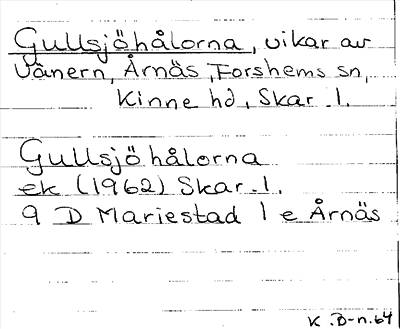 Gullsjöhålorna, vikar av
Vänern, Årnäs, Forshems sn,
Kinne hd, Skar. l.
Gullsjöhålorna
ek (1962) Skar. l.
9 D Mariestad 1 e Årnäs
K. B-n. 64